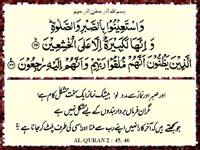 بسم الله الرحمن الرحيم
وَاسْتَعِينُوا بِالصَّبْرِ وَالصَّلَوٰةِ
وَإِنَّهَا لَكَبِيرَةٌ إِلَّا عَلَى الْخَٰشِعِينَ ۝٤٥
الَّذِينَ يَظُنُّونَ أَنَّهُمْ مُلَٰقُوا رَبِّهِمْ وَأَنَّهُمْ إِلَيْهِ رَٰجِعُونَ ۝٤٦
اور صبر اور نماز سے مدد لو بیشک نماز ایک سخت مشکل کام ہے
مگر ان فرماں بردار بندوں کے لیے مشکل نہیں ہے
جو سمجھتے ہیں کہ آخر کار انہیں اپنے رب سے ملنا اور اسی کی طرف پلٹ کر جانا ہے
AL QURAN 2 : 45, 46